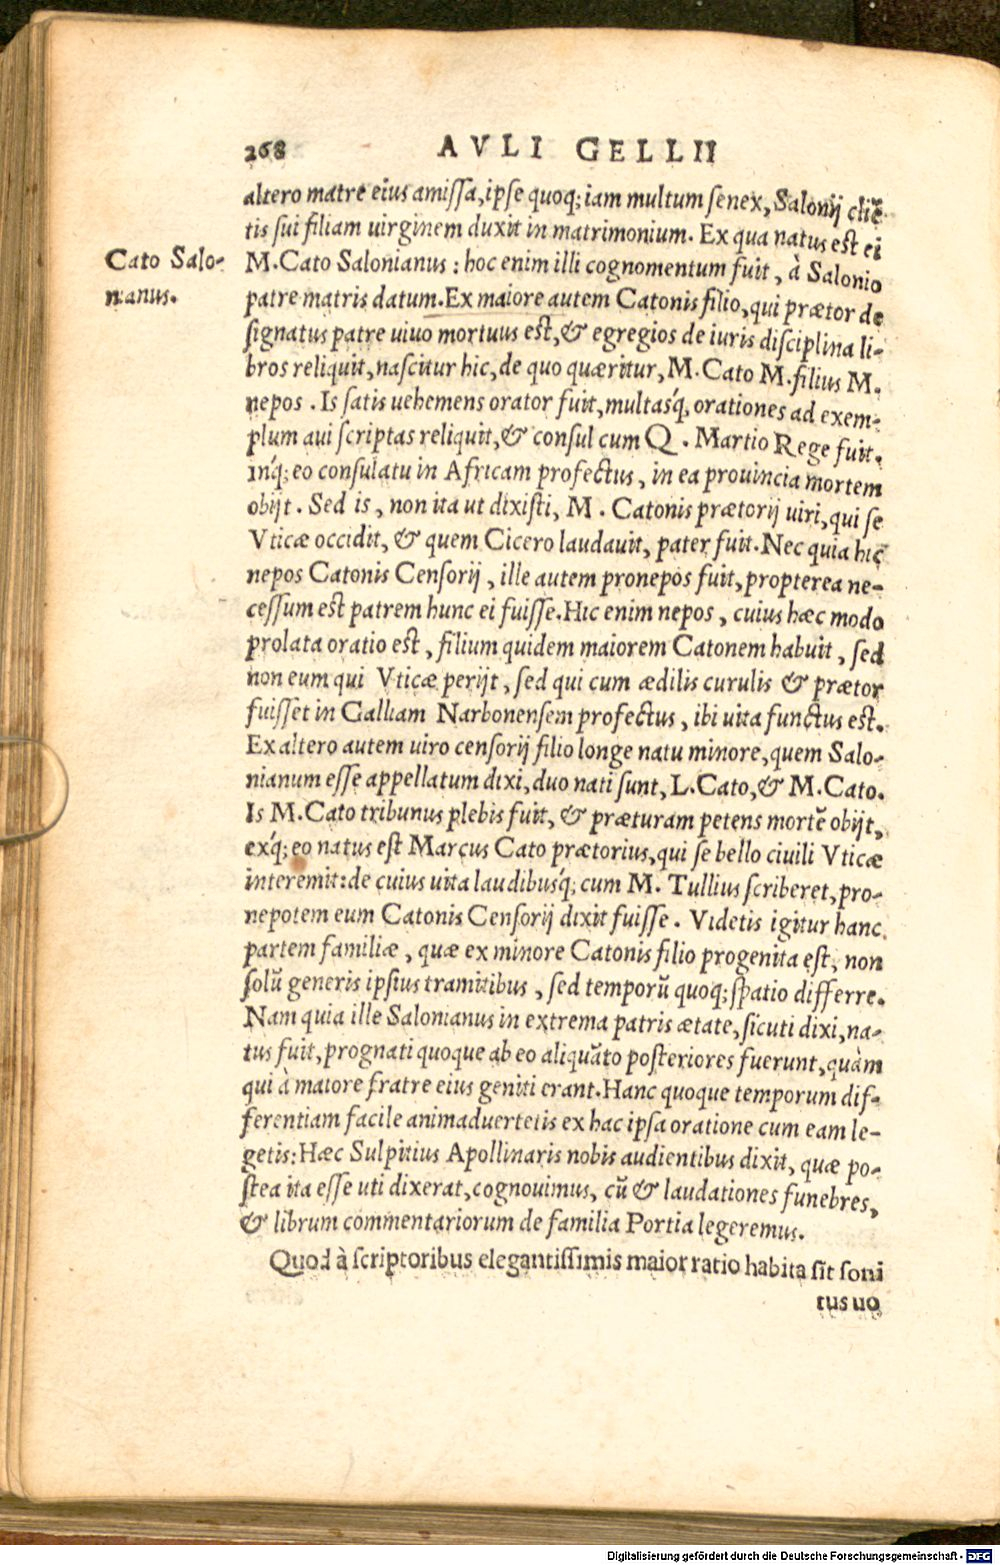 268 AVLI GELLII
altero matre eius amissa, ipse quoq; iam multum senex, Salonij cliē
tis sui filiam uirginem duxit in matrimonium. Ex qua natus est ei
Cato Salo-
nianus.
M. Cato Salonianus: hoc enim illi cognomentum fuit, à Salonio
patre matris datum. Ex maiore autem Catonis filio, qui prætor de
signatus patre uiuo mortuus est, & egregios de iuris disciplina li-
bros reliquit, nascitur hic, de quo quæritur, M. Cato M. filius M.
nepos. Is satis uehemens orator fuit, multasq́; orationes ad exem-
plum aui scriptas reliquit, & consul cum Q. Martio Rege fuit.
inq́; eo consulatu in Africam profectus, in ea prouincia mortem
obijt. Sed is, non ita ut dixisti, M. Catonis prætorij uiri, qui se
Vticæ occidit, & quem Cicero laudauit, pater fuit. Nec quia hic
nepos Catonis Censorij, ille autem pronepos fuit, propterea ne-
cessum est patrem hunc ei fuisse. Hic enim nepos, cuius hæc modo
prolata oratio est, filium quidem maiorem Catonem habuit, sed
non eum qui Vticæ perijt, sed qui cum ædilis curulis & prætor
fuisset in Galliam Narbonensem profectus, ibi uita functus est.
Ex altero autem uiro censorij filio longe natu minore, quem Salo-
nianum esse appellatum dixi, duo nati sunt, L. Cato, & M. Cato.
Is M. Cato tribunus plebis fuit, & præturam petens mortē obijt,
exq́; eo natus est Marcus Cato prætorius, qui se bello ciuili Vticæ
interemit: de cuius uita laudibusq́; cum M. Tullius scriberet, pro-
nepotem eum Catonis Censorij dixit fuisse. Videtis igitur hanc
partem familiæ, quæ ex minore Catonis filio progenita est, non
solū generis ipsius tramitibus, sed temporū quoq; spatio differre.
Nam quia ille Salonianus in extrema patris ætate, sicuti dixi, na-
tus fuit, prognati quoque ab eo aliquāto posteriores fuerunt, quàm
qui à maiore fratre eius geniti erant. Hanc quoque temporum dif-
ferentiam facile animaduertetis ex hac ipsa oratione cum eam le-
getis: Hæc Sulpitius Apollinaris nobis audientibus dixit, quæ po-
stea ita esse uti dixerat, cognouimus, cū & laudationes funebres,
& librum commentariorum de familia Portia legeremus.
Quod à scriptoribus elegantissimis maior ratio habita sit soni
tus uo
Digitalisierung gefördert durch die Deutsche Forschungsgemeinschaft - DFG